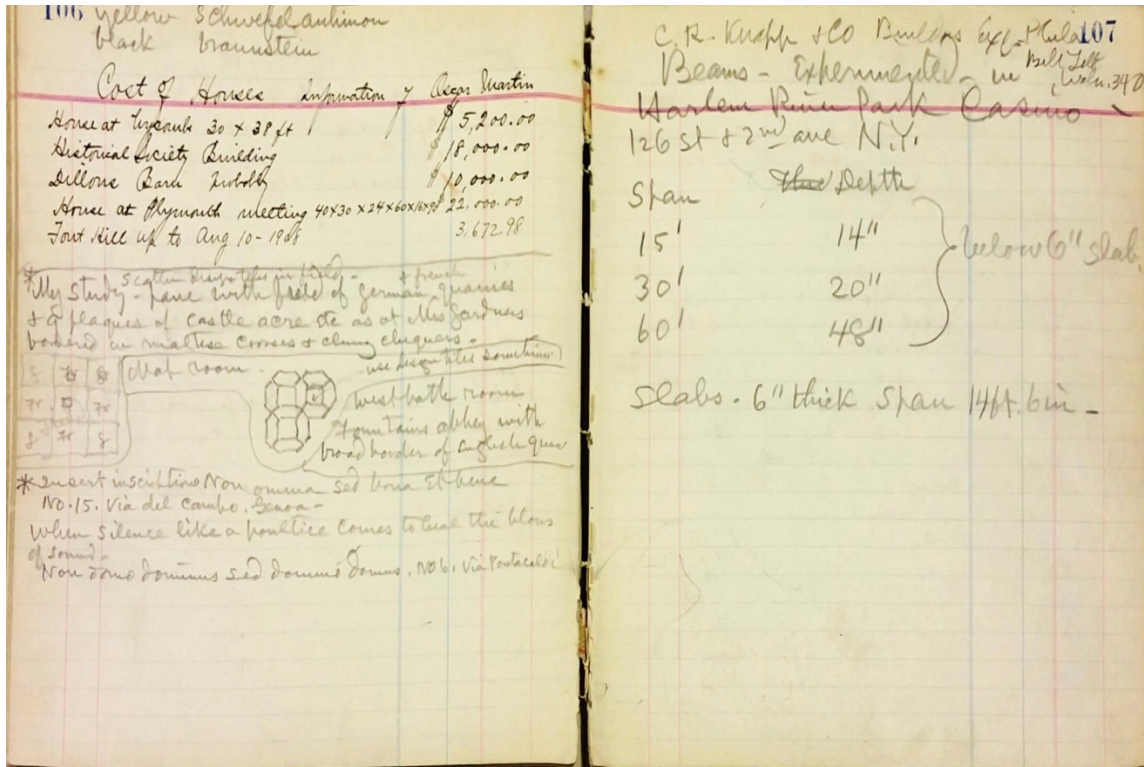 106 yellow Schwefelantimon
black braunstein
Cost of Houses Information of Oscar Martin
House at 30 x 38 ft $ 5,200.00
Historical Society Building $ 18,000.00
Dillons Barn probably $ 10,000.00
House at Plymouth meeting 40x30 x 24x60x16x90 $ 22.000.00
Font Hill up to Aug 10-1908 3,672.98
scatter in field - + french
*My Study - pave with field of german quarries
+ 9 plaques of castle acre etc as at Mrs Gardners
bordered in maltese crosses + cluny chequers -
Map room. use design tiles sometimes
8 8
7r 7r
8 7r 8
west bath room
Fountains abbey with
broad border of english quar
*Insert inscriptions Non omnia sed bona et bene
No. 15. Via del Campo. Genoa -
When silence like a poultice comes to heal the blows
of sound -
Non domo dominus sed domino domus. No 6. Via
107
C. R. Knapp + Co Builders Exg. Phila
Bell Telf
340
Beams - Experimented - in
Harlem River Park Casino
126 St + 2nd ave N.Y.
Span Depth
15' 14"
30' 20" below 6" slab
60' 48"
Slabs. 6" thick span 14ft. 6in -